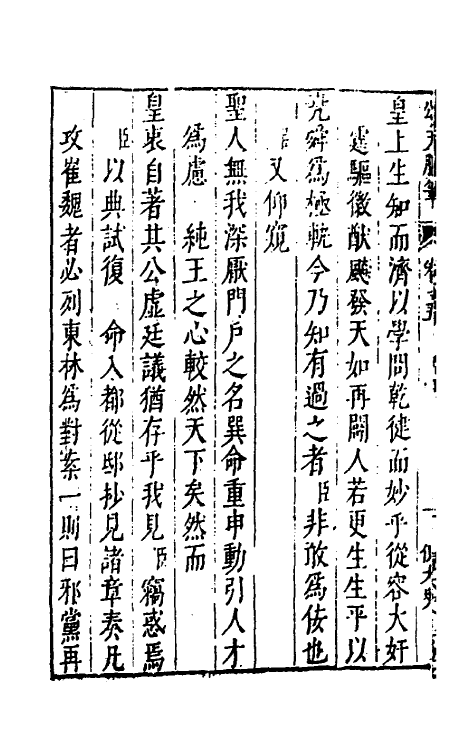 頌天臚筆
皇上生知而濟以學問乾健而妙乎從容大奸
遽驅徵猷飈發天如再闢人若更生生平以
堯舜爲極軌今乃知有過之者臣非敢爲佞也
臣又仰窺
聖人無我深厭門戶之名巽命重申動引人才
爲慮 純王之心較然天下矣然而
皇衷自著其公虛廷議猶存乎我見臣竊惑焉
臣以典試復 命入都從邸抄見諸章奏凡
攻崔魏者必列東林爲對案一則曰邪黨再